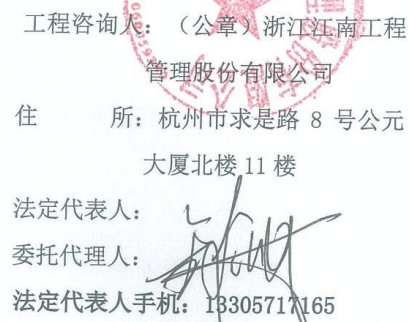 工程咨询人：（公章）浙江江南工程
管理股份有限公司
住 所：杭州市求是路 8 号公元
大厦北楼 11 楼
法定代表人：
委托代理人：
法定代表人手机：13305717165